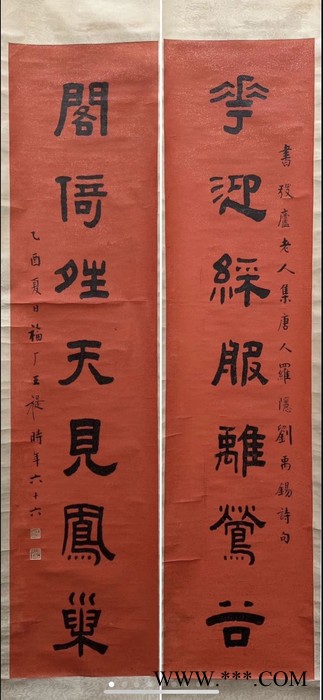 華迎綵服離鶯谷
書弢廬老人集唐人羅隱劉禹錫詩句
閣倚夝天見鳳巢
乙酉夏日福厂王禔時年六十六
WWW.***.COM